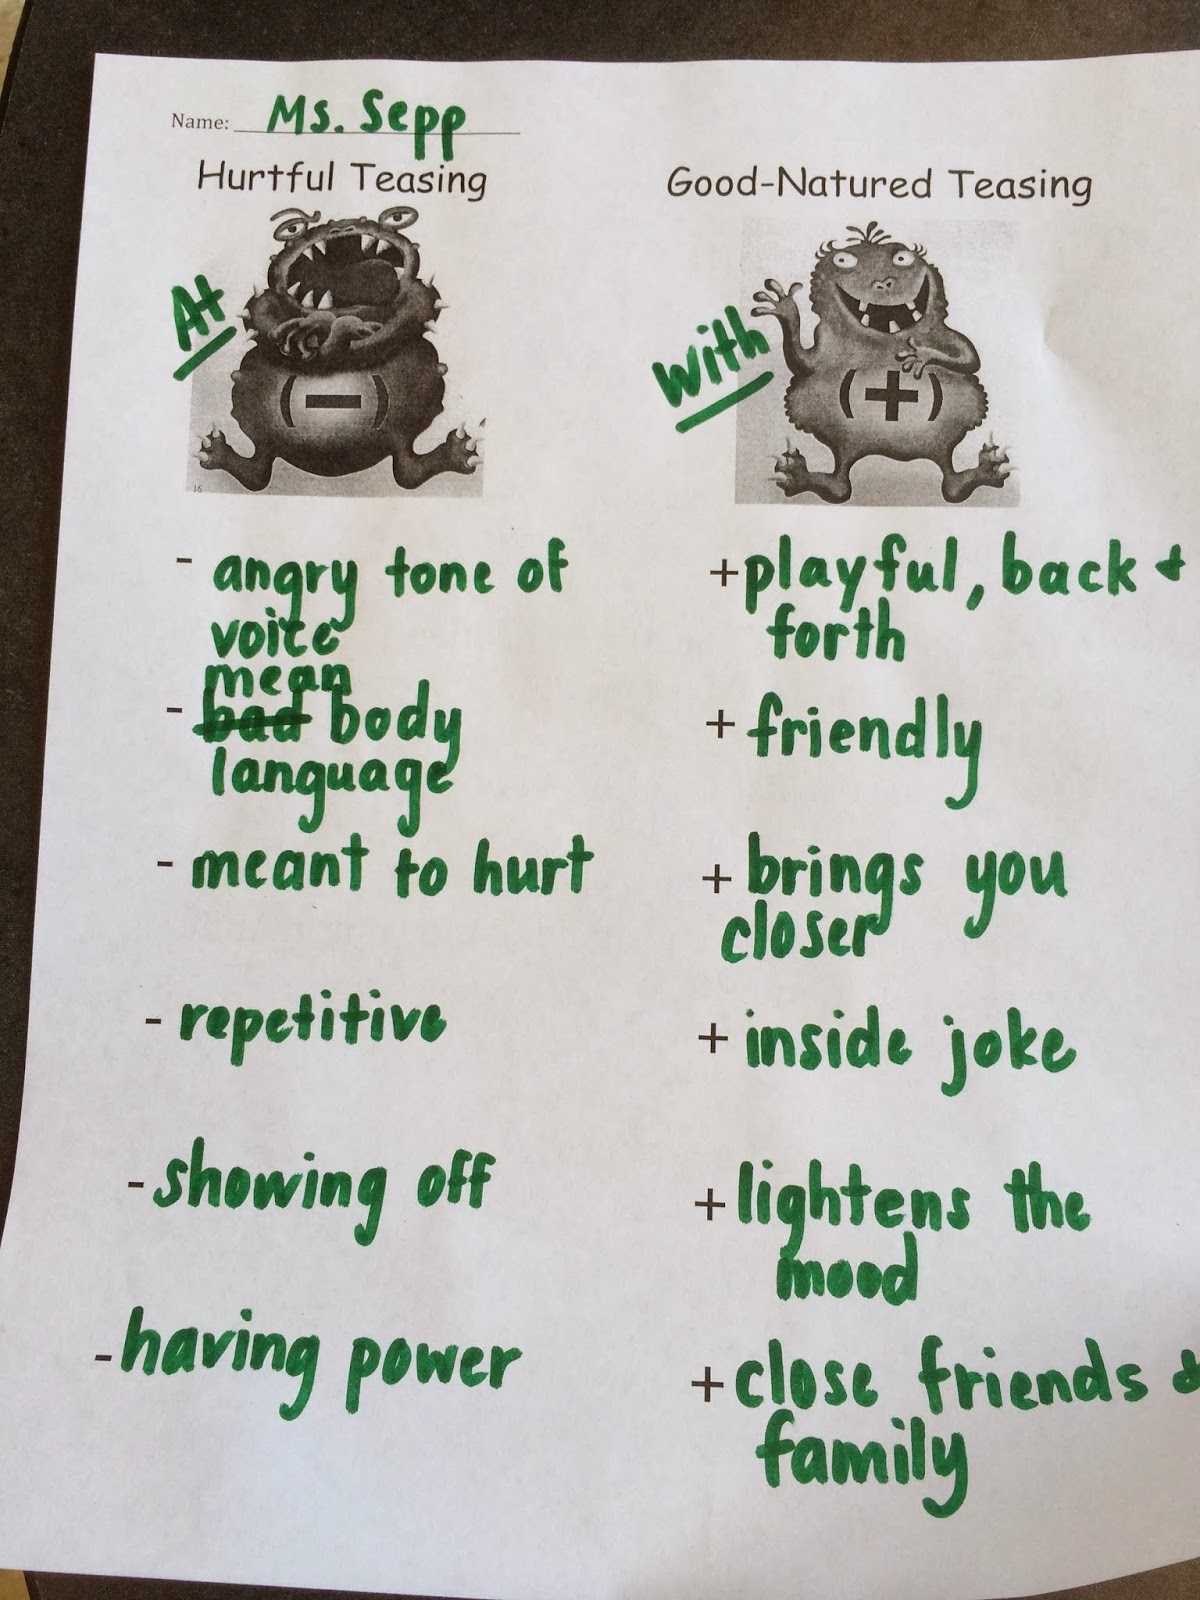 Name: Ms. Sepp
Hurtful Teasing
At
(-)
16
- angry tone of
voice
mean
- bad body
language
- meant to hurt
- repetitive
- showing off
- having power
Good-Natured Teasing
with
(+)
+ playful, back &
forth
+ friendly
+ brings you
closer
+ inside joke
+ lightens the
mood
+ close friends &
family